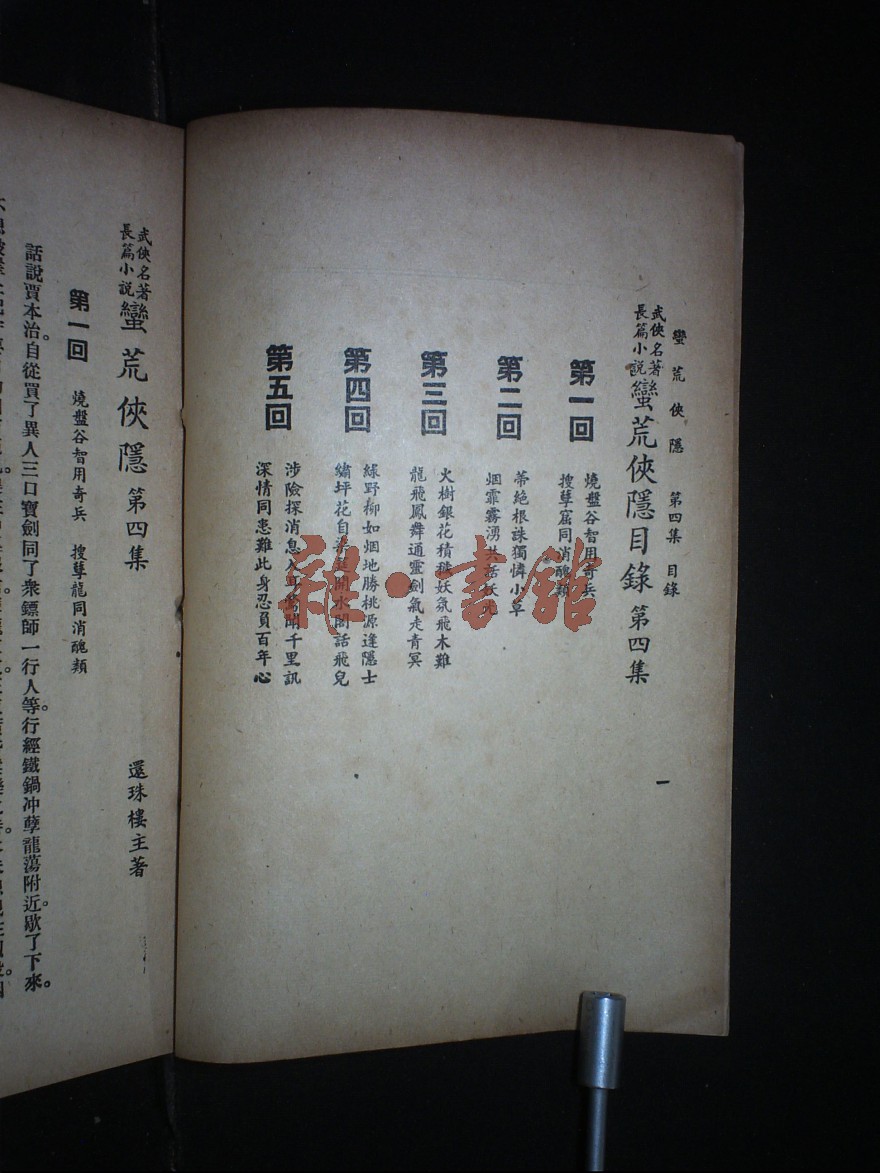 蠻荒俠隱 第四集 目錄
武俠名著
長篇小說
蠻荒俠隱目錄 第四集
第一回
燒盤谷智用奇兵
搜孽窟同消醜類
第二回
蒂絕根誅獨憐小草
烟霏霧湧共話妖
第三回
火樹銀花積穢妖氛飛木難
龍飛鳳舞通靈劍氣走青冥
第四回
綠野柳如烟地勝桃源逢隱士
繡坪花自 水閣話飛兒
第五回
涉險探消息入耳 千里訊
深情同恚難此身忍負百年心
一
雜·書館
武俠名著
長篇小說
蠻荒俠隱 第四集
還珠樓主著
第一回 燒盤谷智用奇兵 搜孽龍同消醜類
話說賈本治自從買了異人三口寶劍。同了衆鏢師一行人等。行經鐵鍋冲孽龍蕩附近。歇了下來。